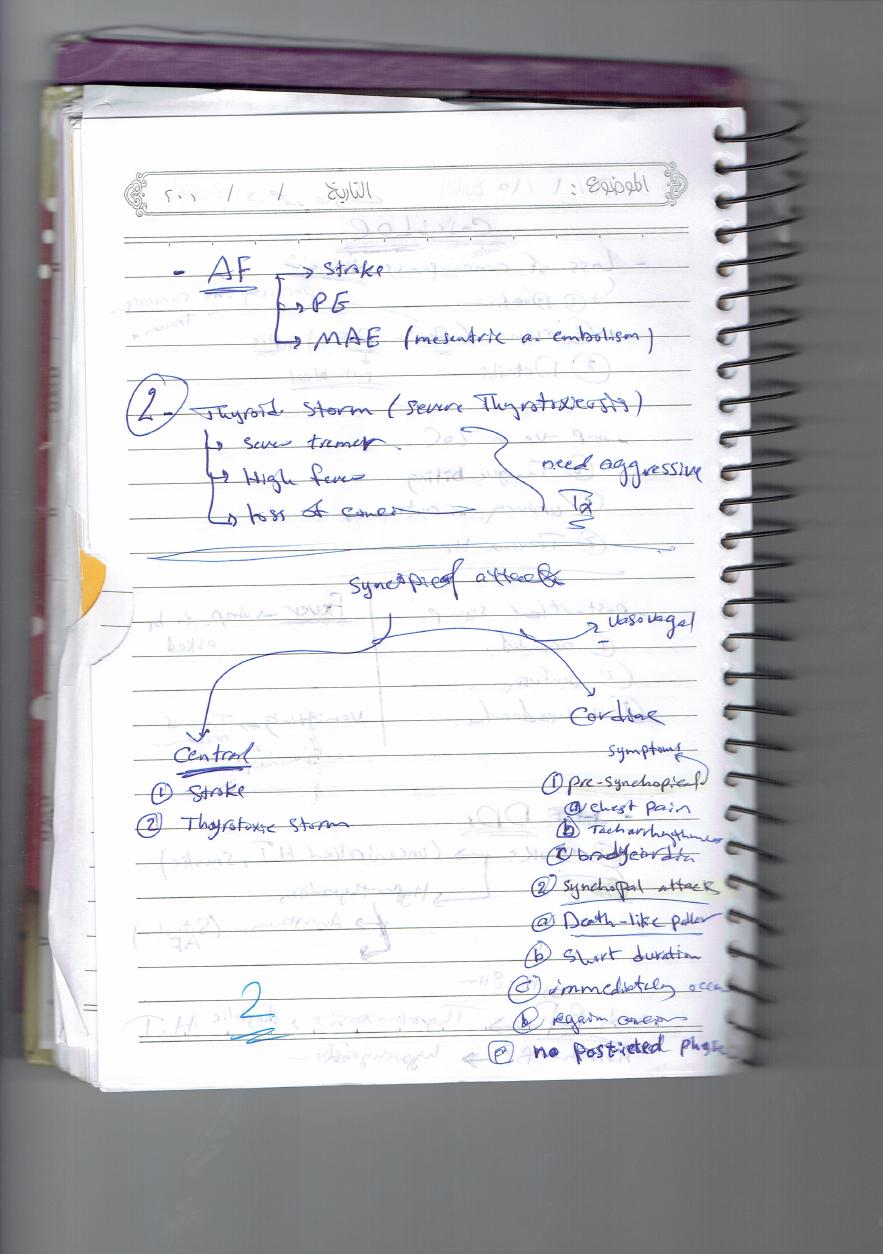 الموضوع : التاريخ / / ٢٠٠
- AF → stroke
→ PE
→ MAE (mesentric a. embolism)
2- Thyroid storm (severe Thyrotoxicosis)
→ sever tremor
→ High fever
→ loss of conc
need aggressive
Tx
syncopief attack
→ vasovagal
Cardiac
Central
① Stroke
② Thyrotoxic storm
symptoms
① pre-synchopical
ⓐ chest pain
ⓑ Tacharrhythmes
ⓒ bradycardia
② synchopal attack
ⓐ Death-like pallor
ⓑ short duration
ⓒ immediately occu
ⓑ regain conc
ⓔ no posticted phase
2